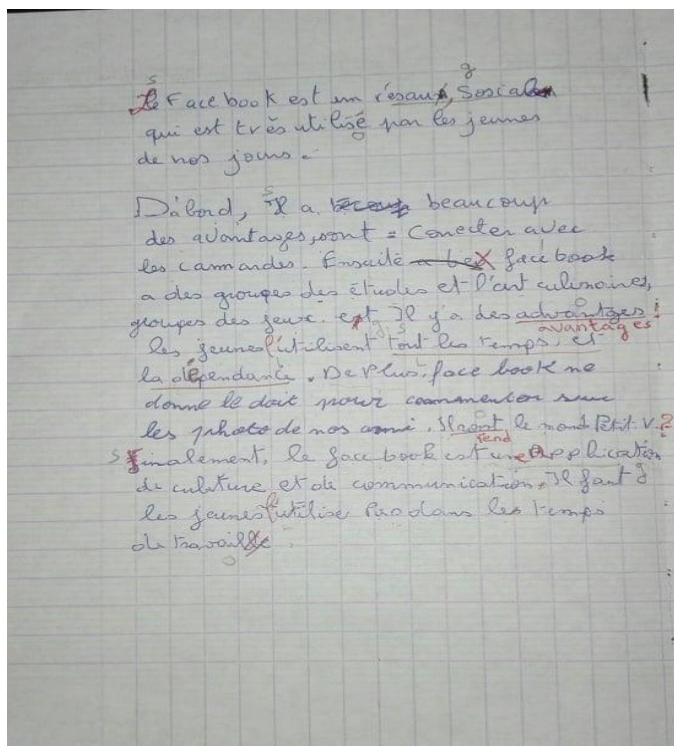 s g
Le Face book est un résaux, Sosial
qui est très utilisé par les jeunes
de nos jours.
D'abord, s Il a beaucoup
des avantages, sont = Conecter avec
les camarades. Ensuite X face book
a des groupes des études et l'art culinaires,
groupes des jeux. est Il y'a des advantages :
avantages
les jeunes l'utilisent tout les temps, et
la dépendance. De Plus, face book ne
donne le doit pour commenter sur
les photo de nos ami. Il rent le mond Petit V ?
rend
s finalement, le face book est une application
de culuture et de communication. Il faut g
les jeunes l'utilise Pas dans les temps
de travaille